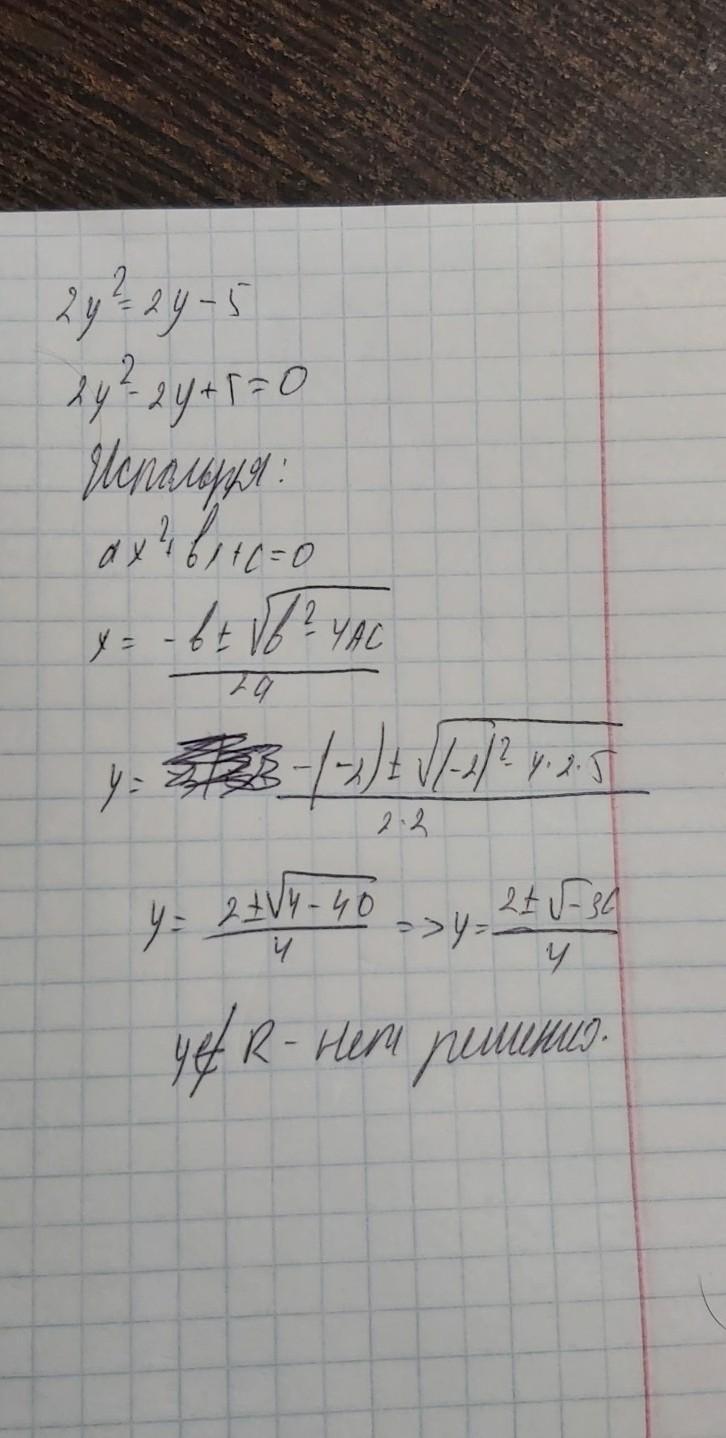 2y² = 2y - 5
2y² - 2y + 5 = 0
Используя:
ax² + bx + c = 0
x = (-b ± √(b² - 4AC)) / 2a
y = (-(-2) ± √((-2)² - 4·2·5)) / 2·2
y = (2 ± √(4 - 40)) / 4 => y = (2 ± √(-36)) / 4
y ∉ R - нет решения.